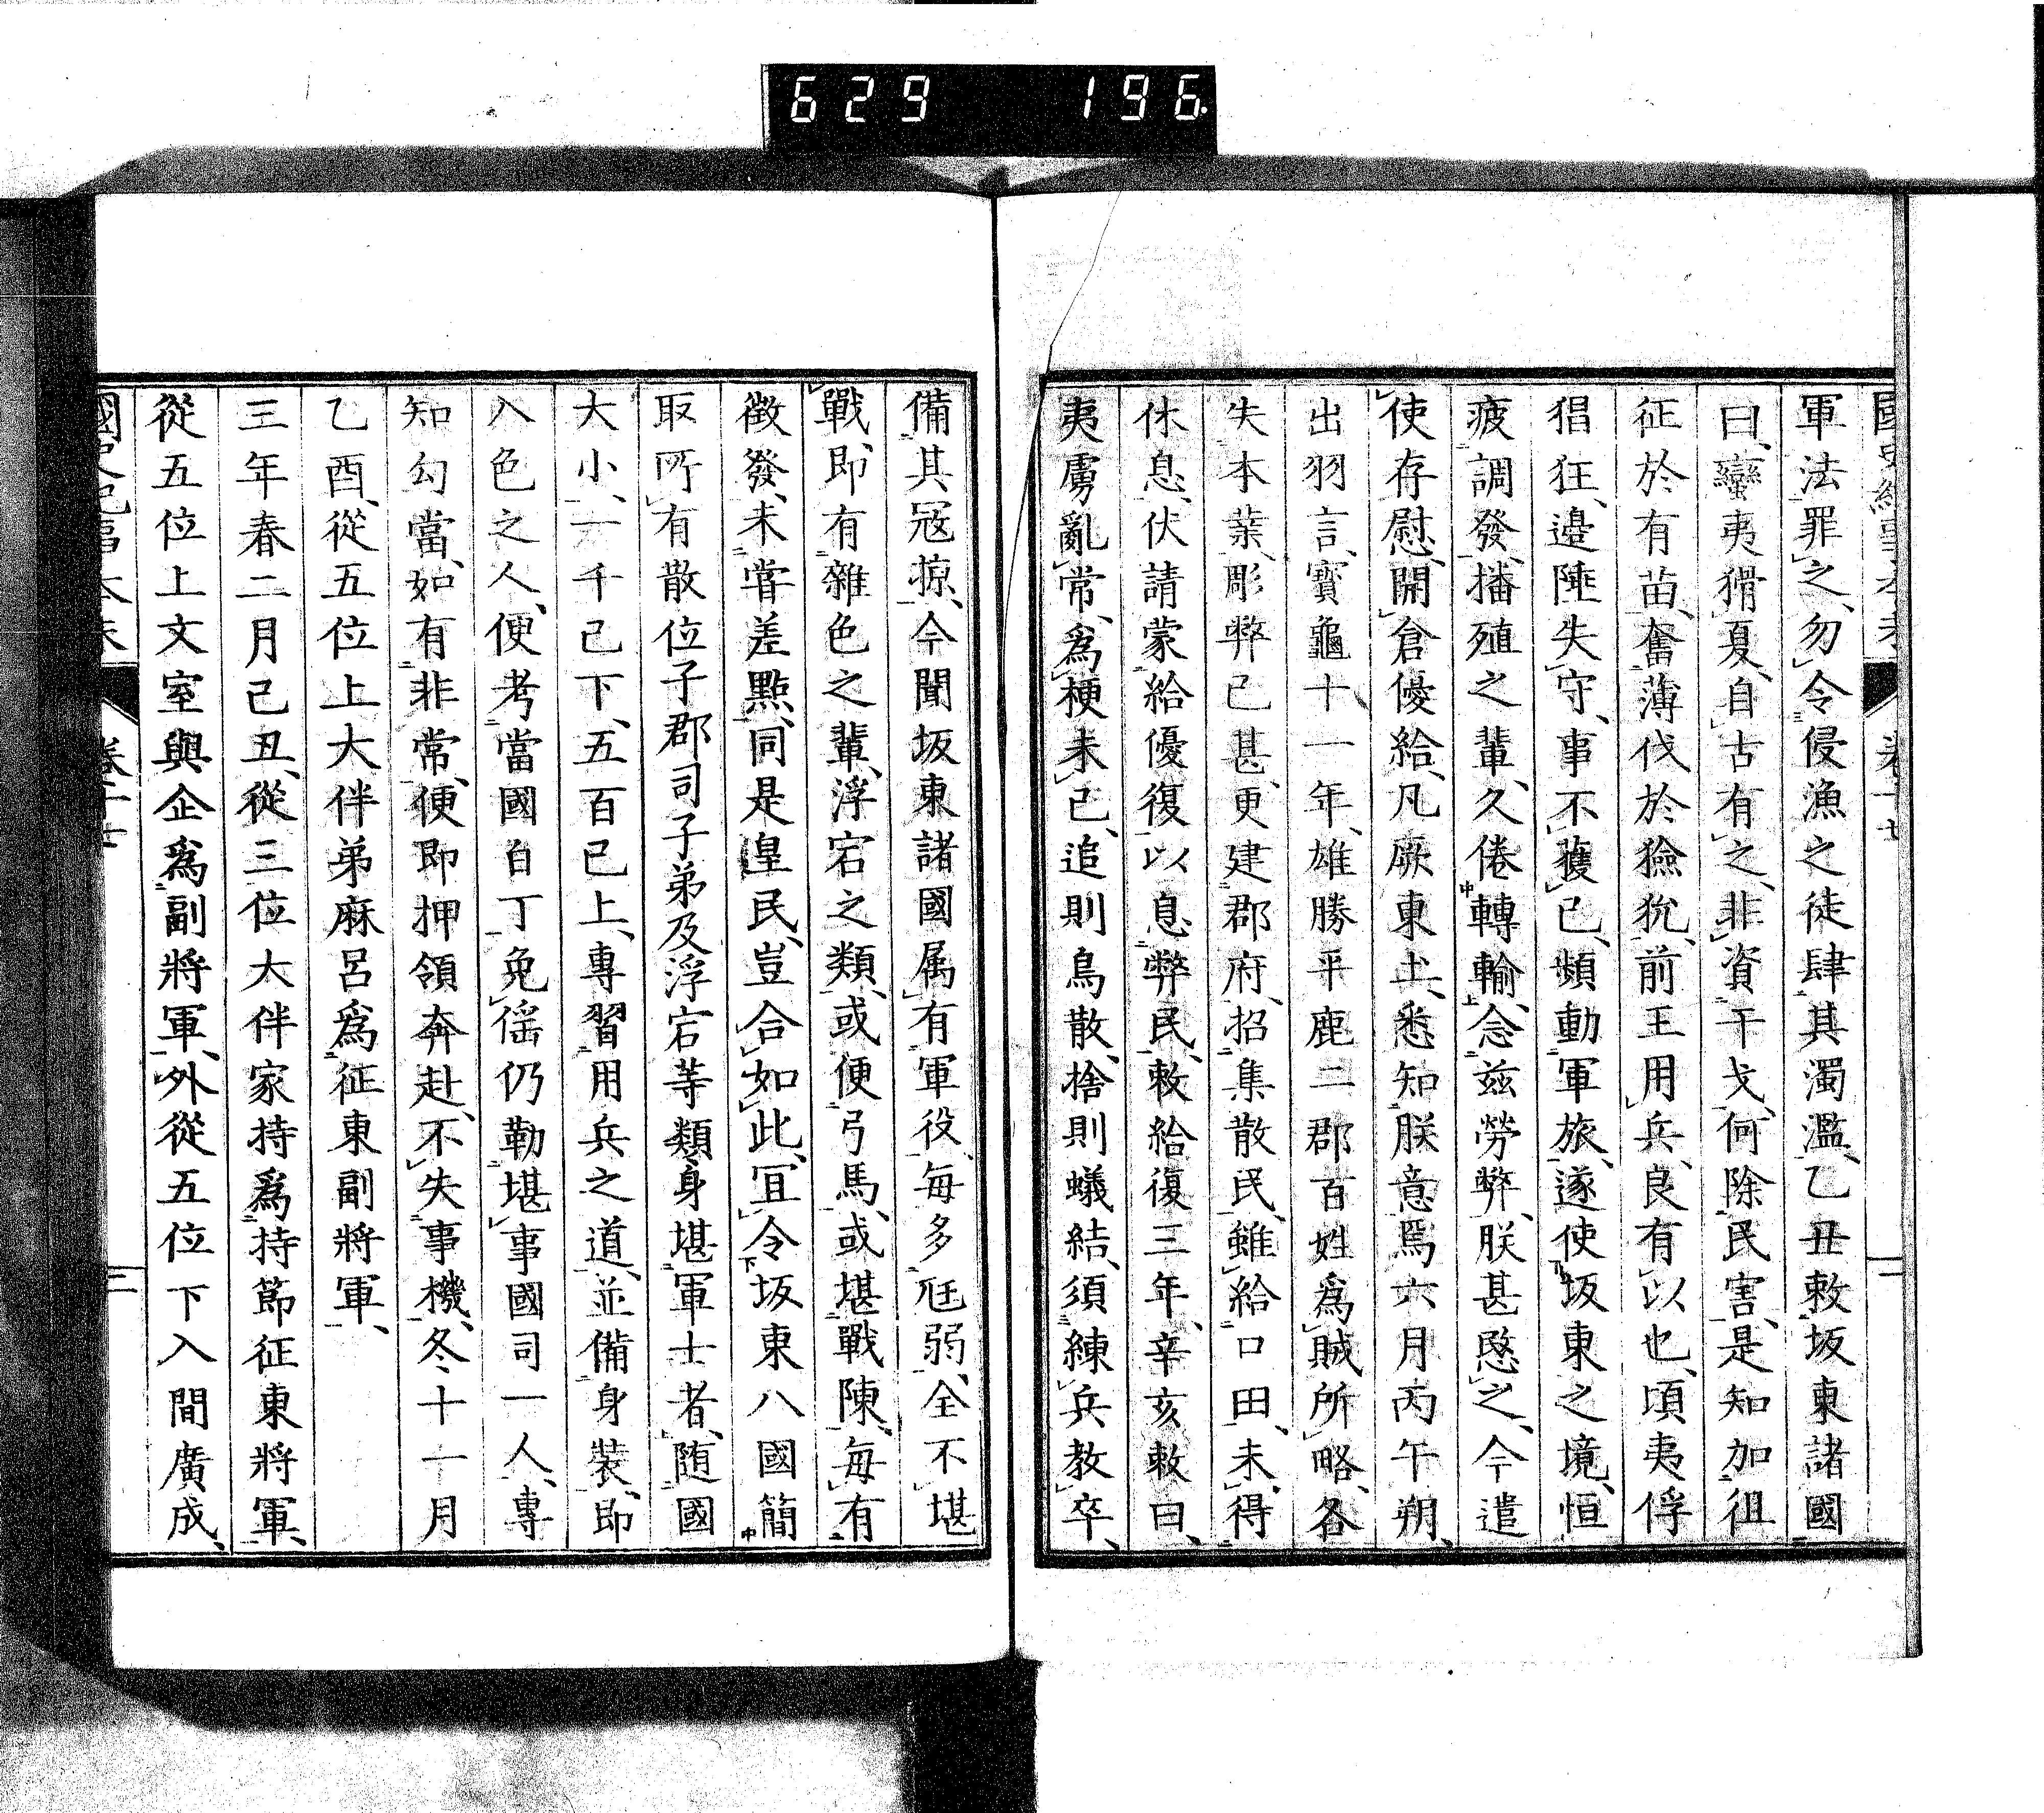 629 196
軍法罪之、勿令侵漁之徒肆其濁濫、乙丑敕坂東諸國
曰、蠻夷猾夏、自古有之、非資干戈、何除民害、是知加徂
征於有苗、奮薄伐於獫狁、前王用兵、良有以也、頃夷俘
猖狂、邊陲失守、事不獲已、頻動軍旅、遂使坂東之境、恒
疲調發、播殖之輩、久倦轉輸、念茲勞弊、朕甚愍之、今遣
使存慰、開倉優給、凡厥東土、悉知朕意焉六月丙午朔、
出羽言、寶龜十一年、雄勝平鹿二郡百姓爲賊所略、各
失本業、彫弊已甚、更建郡府、招集散民、雖給口田、未得
休息、伏請蒙給優復、以息弊民、敕給復三年、辛亥敕曰、
夷虜亂常、爲梗未已、追則鳥散、捨則蟻結、須練兵教卒、
備其寇掠、今聞坂東諸國属有軍役、每多尫弱、全不堪
戰、即有雜色之輩、浮宕之類、或便弓馬、或堪戰陳、每有
徴發、未甞差點、同是皇民、豈合如此、冝令坂東八國簡
取所有散位子郡司子弟及浮宕等類身堪軍士者、随國
大小、一千已下、五百已上、專習用兵之道、並備身裝、即
入色之人、便考當國白丁免徭仍勒堪事國司一人、專
知勾當、如有非常、便即押領奔赴、不失事機、冬十一月
乙酉、從五位上大伴弟麻呂爲征東副將軍、
三年春二月己丑、從三位大伴家持爲持節征東將軍、
從五位上文室與企爲副將軍、外從五位下入間廣成、